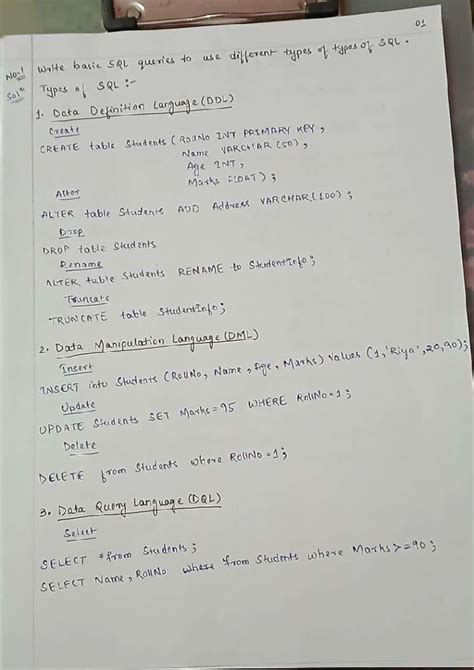 01
No:1 Write basic SQL queries to use different types of types of SQL.
Solⁿ Types of SQL :-
1. Data Definition Language (DDL)
Create
CREATE table Students (RollNo INT PRIMARY KEY,
Name VARCHAR (50),
Age INT,
Marks FLOAT);
Alter
ALTER table Students ADD Address VARCHAR(100);
Drop
DROP table Students
Rename
ALTER table Students RENAME to StudentInfo;
Truncate
TRUNCATE table StudentInfo;
2. Data Manipulation Language (DML)
Insert
INSERT into Students (RollNo, Name, Age, Marks) Values (1, 'Riya', 20, 90);
Update
UPDATE Students SET Marks = 95 WHERE RollNo = 1;
Delete
DELETE from Students where RollNo = 1;
3. Data Query Language (DQL)
Select
SELECT * from Students;
SELECT Name, RollNo where from Students where Marks >= 90;